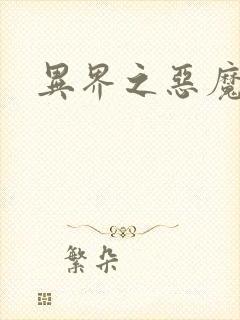 異界之惡魔
繁朵